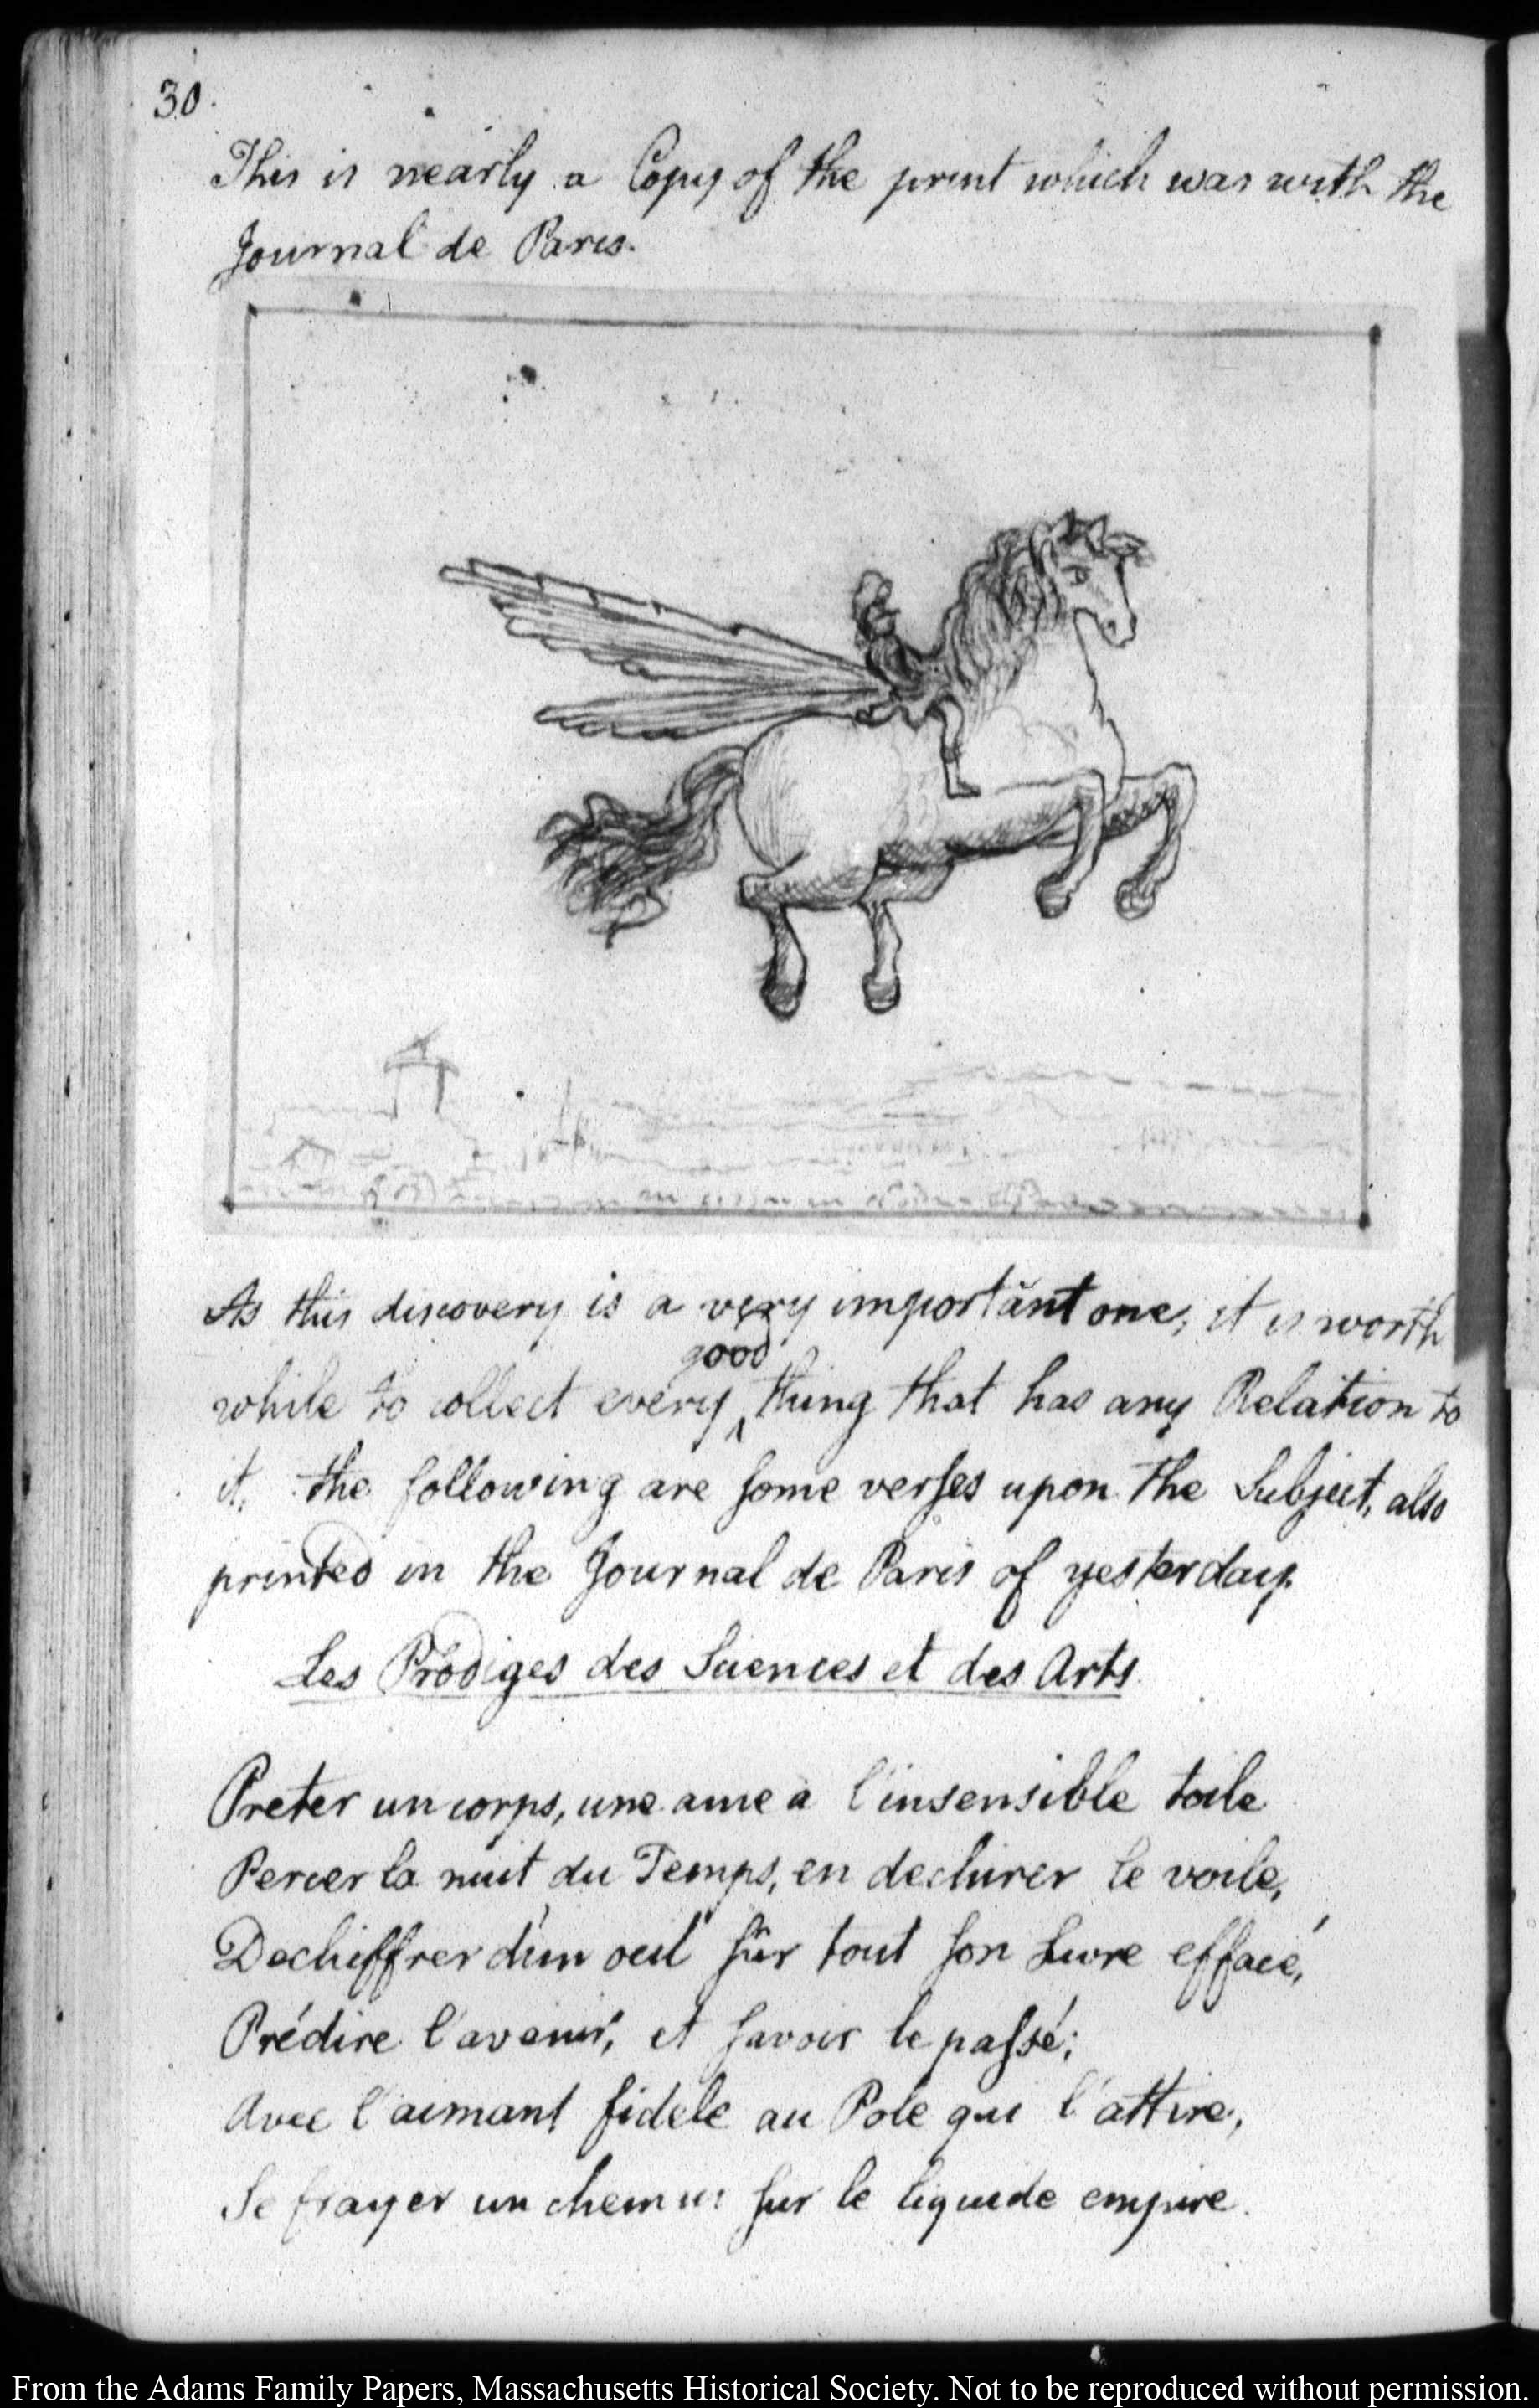 30.
This is nearly a Copy of the print which was with the
Journal de Paris.
As this discovery is a very important one, it is worth
good
while to collect every ^ thing that has any Relation to
it, the following are some verses upon the Subject, also
printed in the Journal de Paris of yesterday.
Les Prodiges des Sciences et des Arts
Preter un corps, une ame à l'insensible toile
Percer la nuit du Temps, en dechirer le voile,
Dechiffrer d'un oeil sûr tout son Livre effacé,
Prédire l'avenir, et savoir le passé;
Avec l'aimant fidele au Pole qui l'attire,
Se frayer un chemin sur le liquide empire.
From the Adams Family Papers, Massachusetts Historical Society. Not to be reproduced without permission